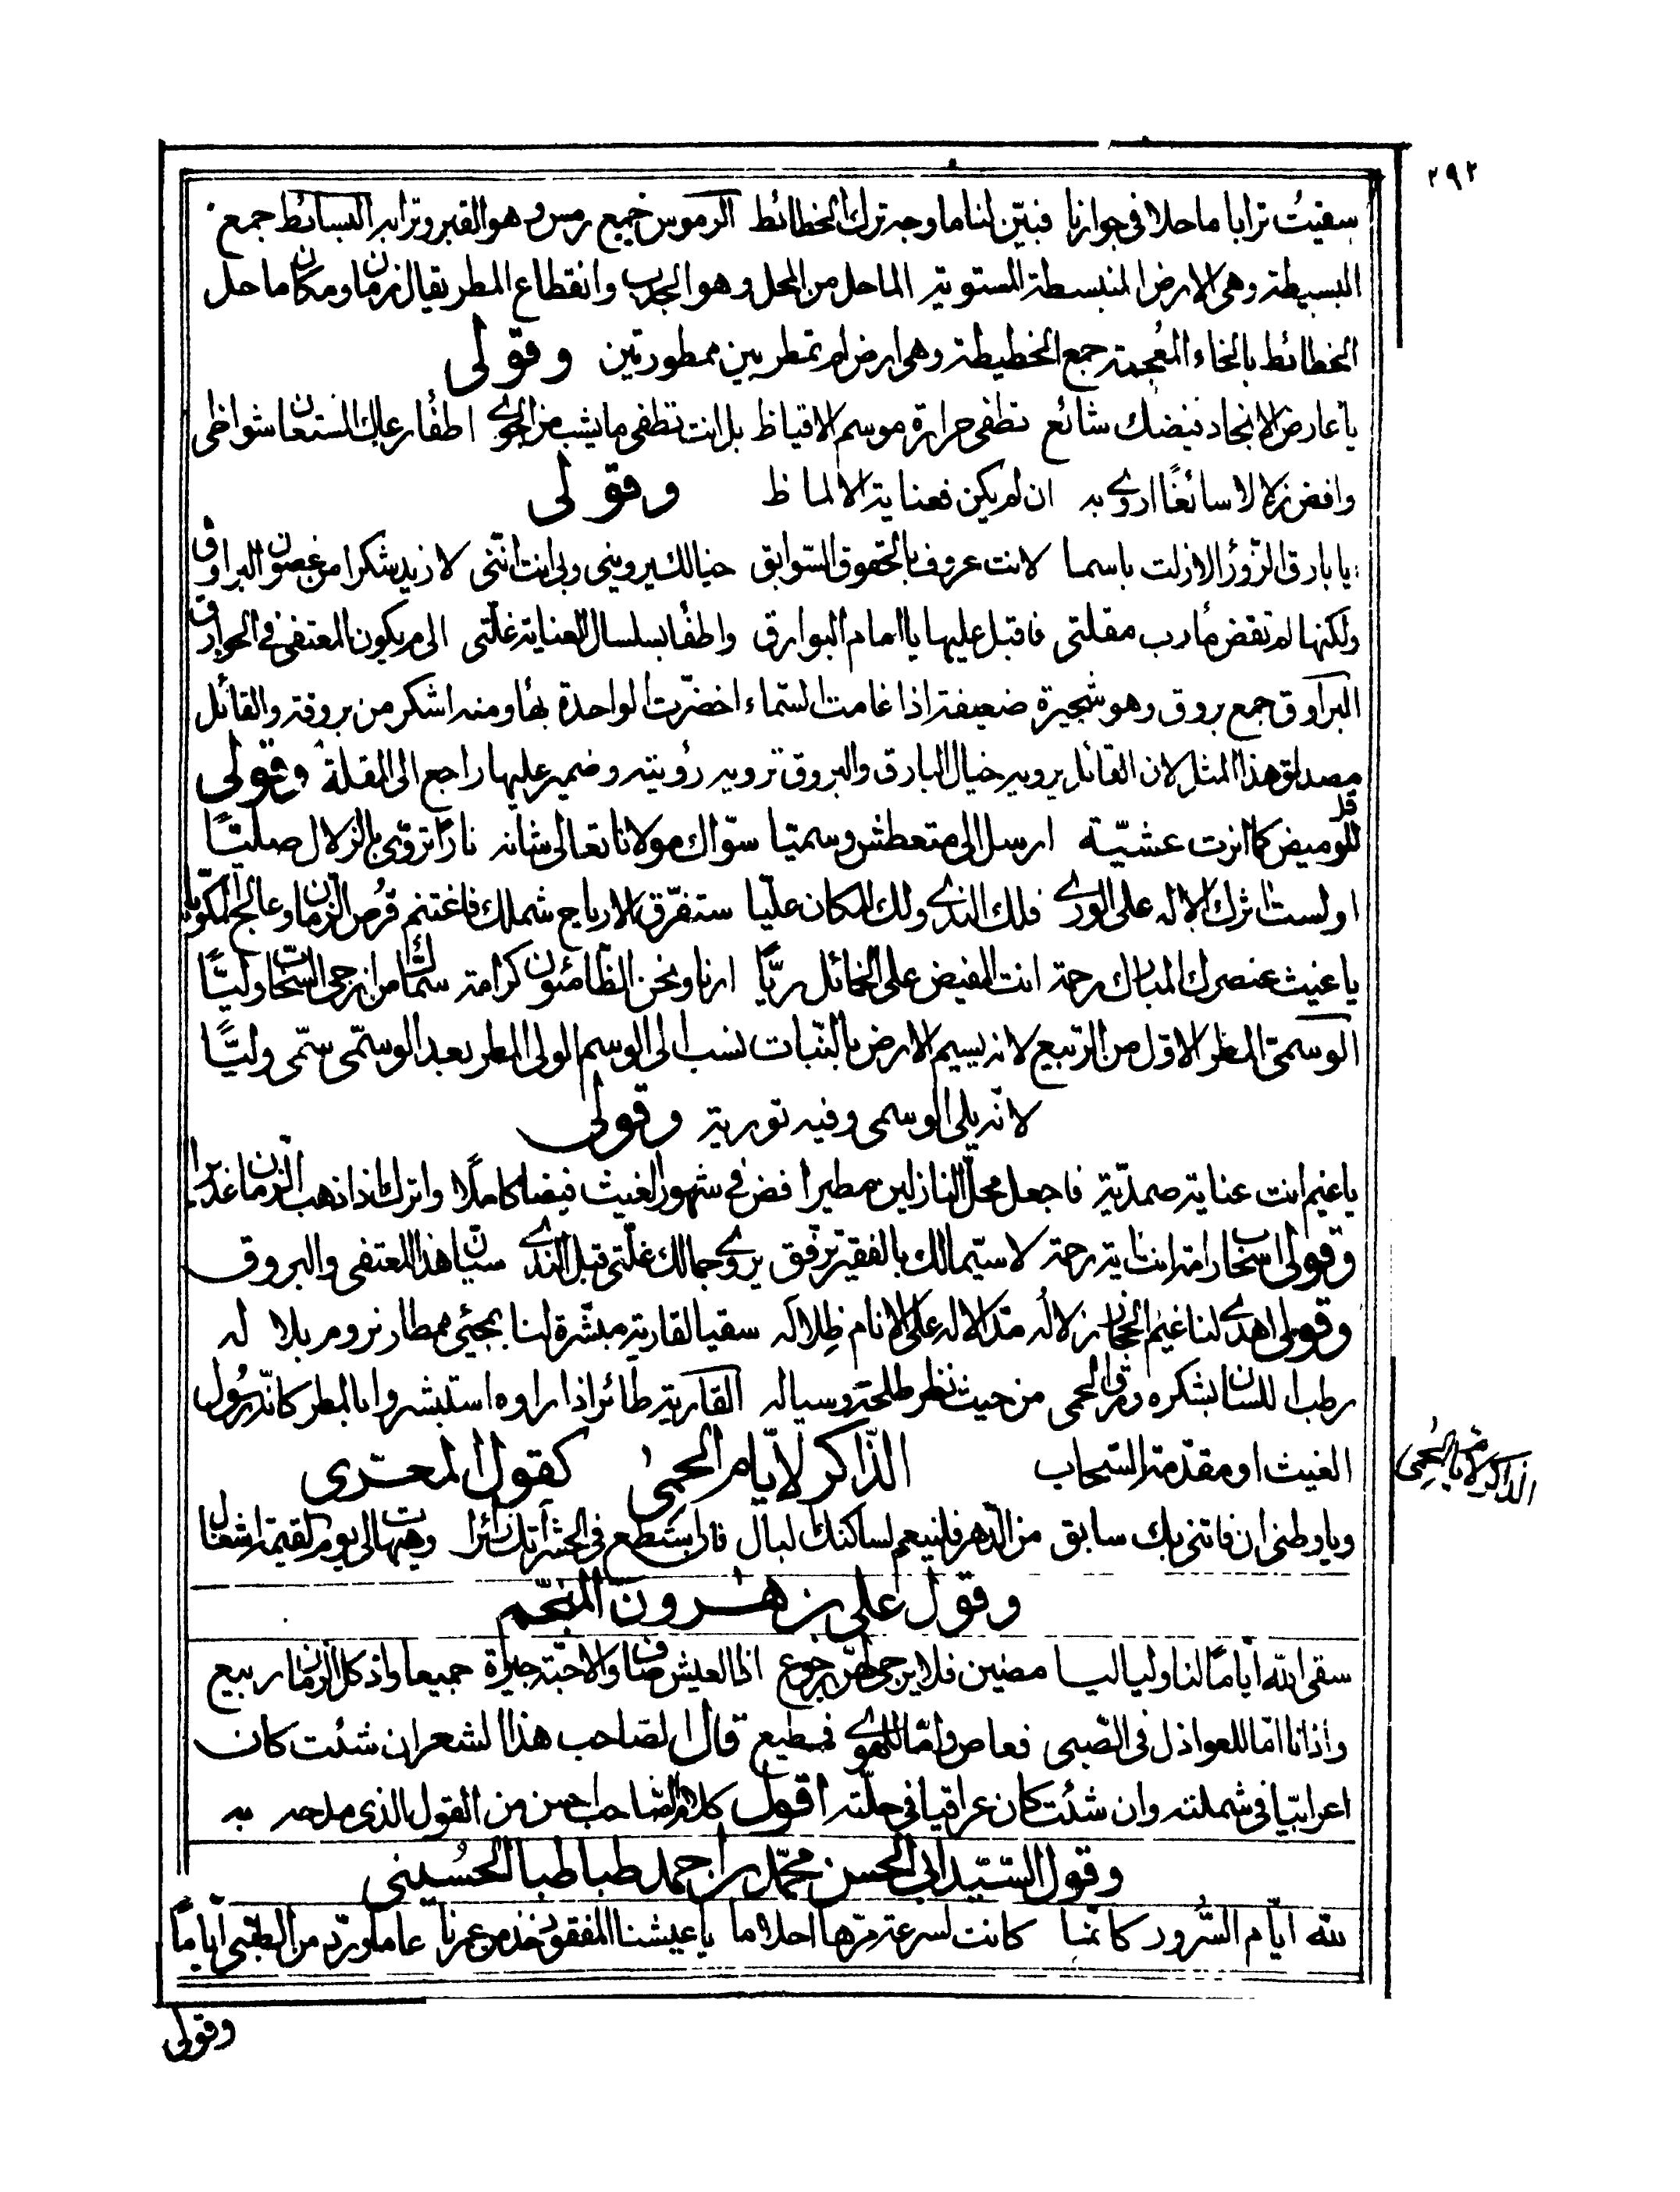 ٢٩٢
سقيتُ ترابا ماحلا في جوارنا فبيّن لنا ما وجه ترك الخطائط الرموس جمع رمس وهو القبر وترابه البسائط جمع
البسيطة وهي الارض المنبسطة المستوية الماحل من المحل وهو الجدب وانقطاع المطر يقال زمان ومكان ماحل
الخطائط بالخاء المعجمة جمع الخطيطة وهي ارض لم تمطر بين ممطورتين وقولي
يا عارض الانجاد فيضك شائع تطفى حرارة موسم الاقياظ بل انت تطفى ما يشب من الجوى اطفأر عليك شواظي
وافض زلالا سائغًا اروى به ان لم يكن فعناية الالماظ وقولي
يا بارق الزوراء لازلت باسما لانت عروف بالحقوق السوابق خيالك يرويني وبي انت انني لازيد شكرا من غصون البراوق
ولكنها لم تقض مأرب مقلتي فاقبل عليها يا امام البوارق واطفأ بسلسال العناية غلتي الى م يكون المعتفى في الحرائق
البراوق جمع بروق وهو شجيرة ضعيفة اذا غامت السماء اخضرّت الواحدة بهاء ومنه اشكر من بروقة والقائل
مصداق هذا المثل لان القائل يرويه خيال البارق والبروق ترويه رؤيته وضمير عليها راجع الى المقلة وقولي
قل للوميض كما انرت عشيّة ارسل الى متعطش وسميّا سوّاك مولانا تعالى شانه نارًا تروّى بالزلال صليّا
اولست اثرك الاله على الورى فلك الندى ولك المكان عليّا ستفرّق الارياح شملك فاغتنم فرص الزمان وعالج المكويّا
يا غيث عنصرك المبارك رحمة انت المفيض على الخمائل ريّا ارنا ونحن الظامئون كرامة من ازجى السحاب وليّا
الوسمىّ المطر الاوّل من الربيع لانه يسيم الارض بالنّبات نسب الى الوسم الولي المطر بعد الوسمّى سمّى وليّا
لانّه يلي الوسمى وفيه تورية وقولي
يا غيم انت عناية صمديّة فاجعل محلّ النازلين مطيرا افض في شهور الغيث فيضا كاملًا واترك اذا ذهب الزمان غديرا
وقولي اسحاب رامة انت اية رحمة لا سيما لك بالفقير ترفق يروى جمالك غلتي قبل الندى سيّان هذا المعتفى والبروق
وقولي اهدى لنا غيم الحجاز زلاله مدّ الاله على الانام ظلاله سقيا لقارية مبشّرة لنا بمجيئ ممطار نروم بلاله
رطب اللسان بشكره ورق الحمى من حيث نظّر طلحة وسياله القارية طائر اذا راوه استبشروا بالمطر كانّه رسول
الغيث او مقدّمة السّحاب الذّاكر لايّام الحمى كقول المعرى
الذاكر لايام الحمى
ويا وطني ان فاتني بك سابق من الدهر فلينعم لساكنك البال فان استطع في الحشر آتك زائرا وهيهات لي يوم القيمة اشغال
وقول علي بن هرون المنجّم
سقى الله ايّامًا لنا ولياليا مضين فلا يرجى لهنّ رجوع اذ العيش صاف والاحبّة جيرة جميعا واذ كل الزمان ربيع
واذ انا امّا للعواذل في الصّبى فعاص وامّا للهوى فمطيع قال الصّاحب هذا الشعر ان شئت كان
اعرابيّا في شملته وان شئت كان عراقيا في حلّته اقول كلام الصّاحب احسن من القول الذي مدحه به
وقول السّيّد ابي الحسن محمّد بن احمد طباطبا الحُسيني
لله ايّام السُّرور كانّما كانت لسرعة مرّها احلاما يا عيشنا المفقود خذ من عمرنا عاما وردّ من الصّبى ايّامًا
وقولي